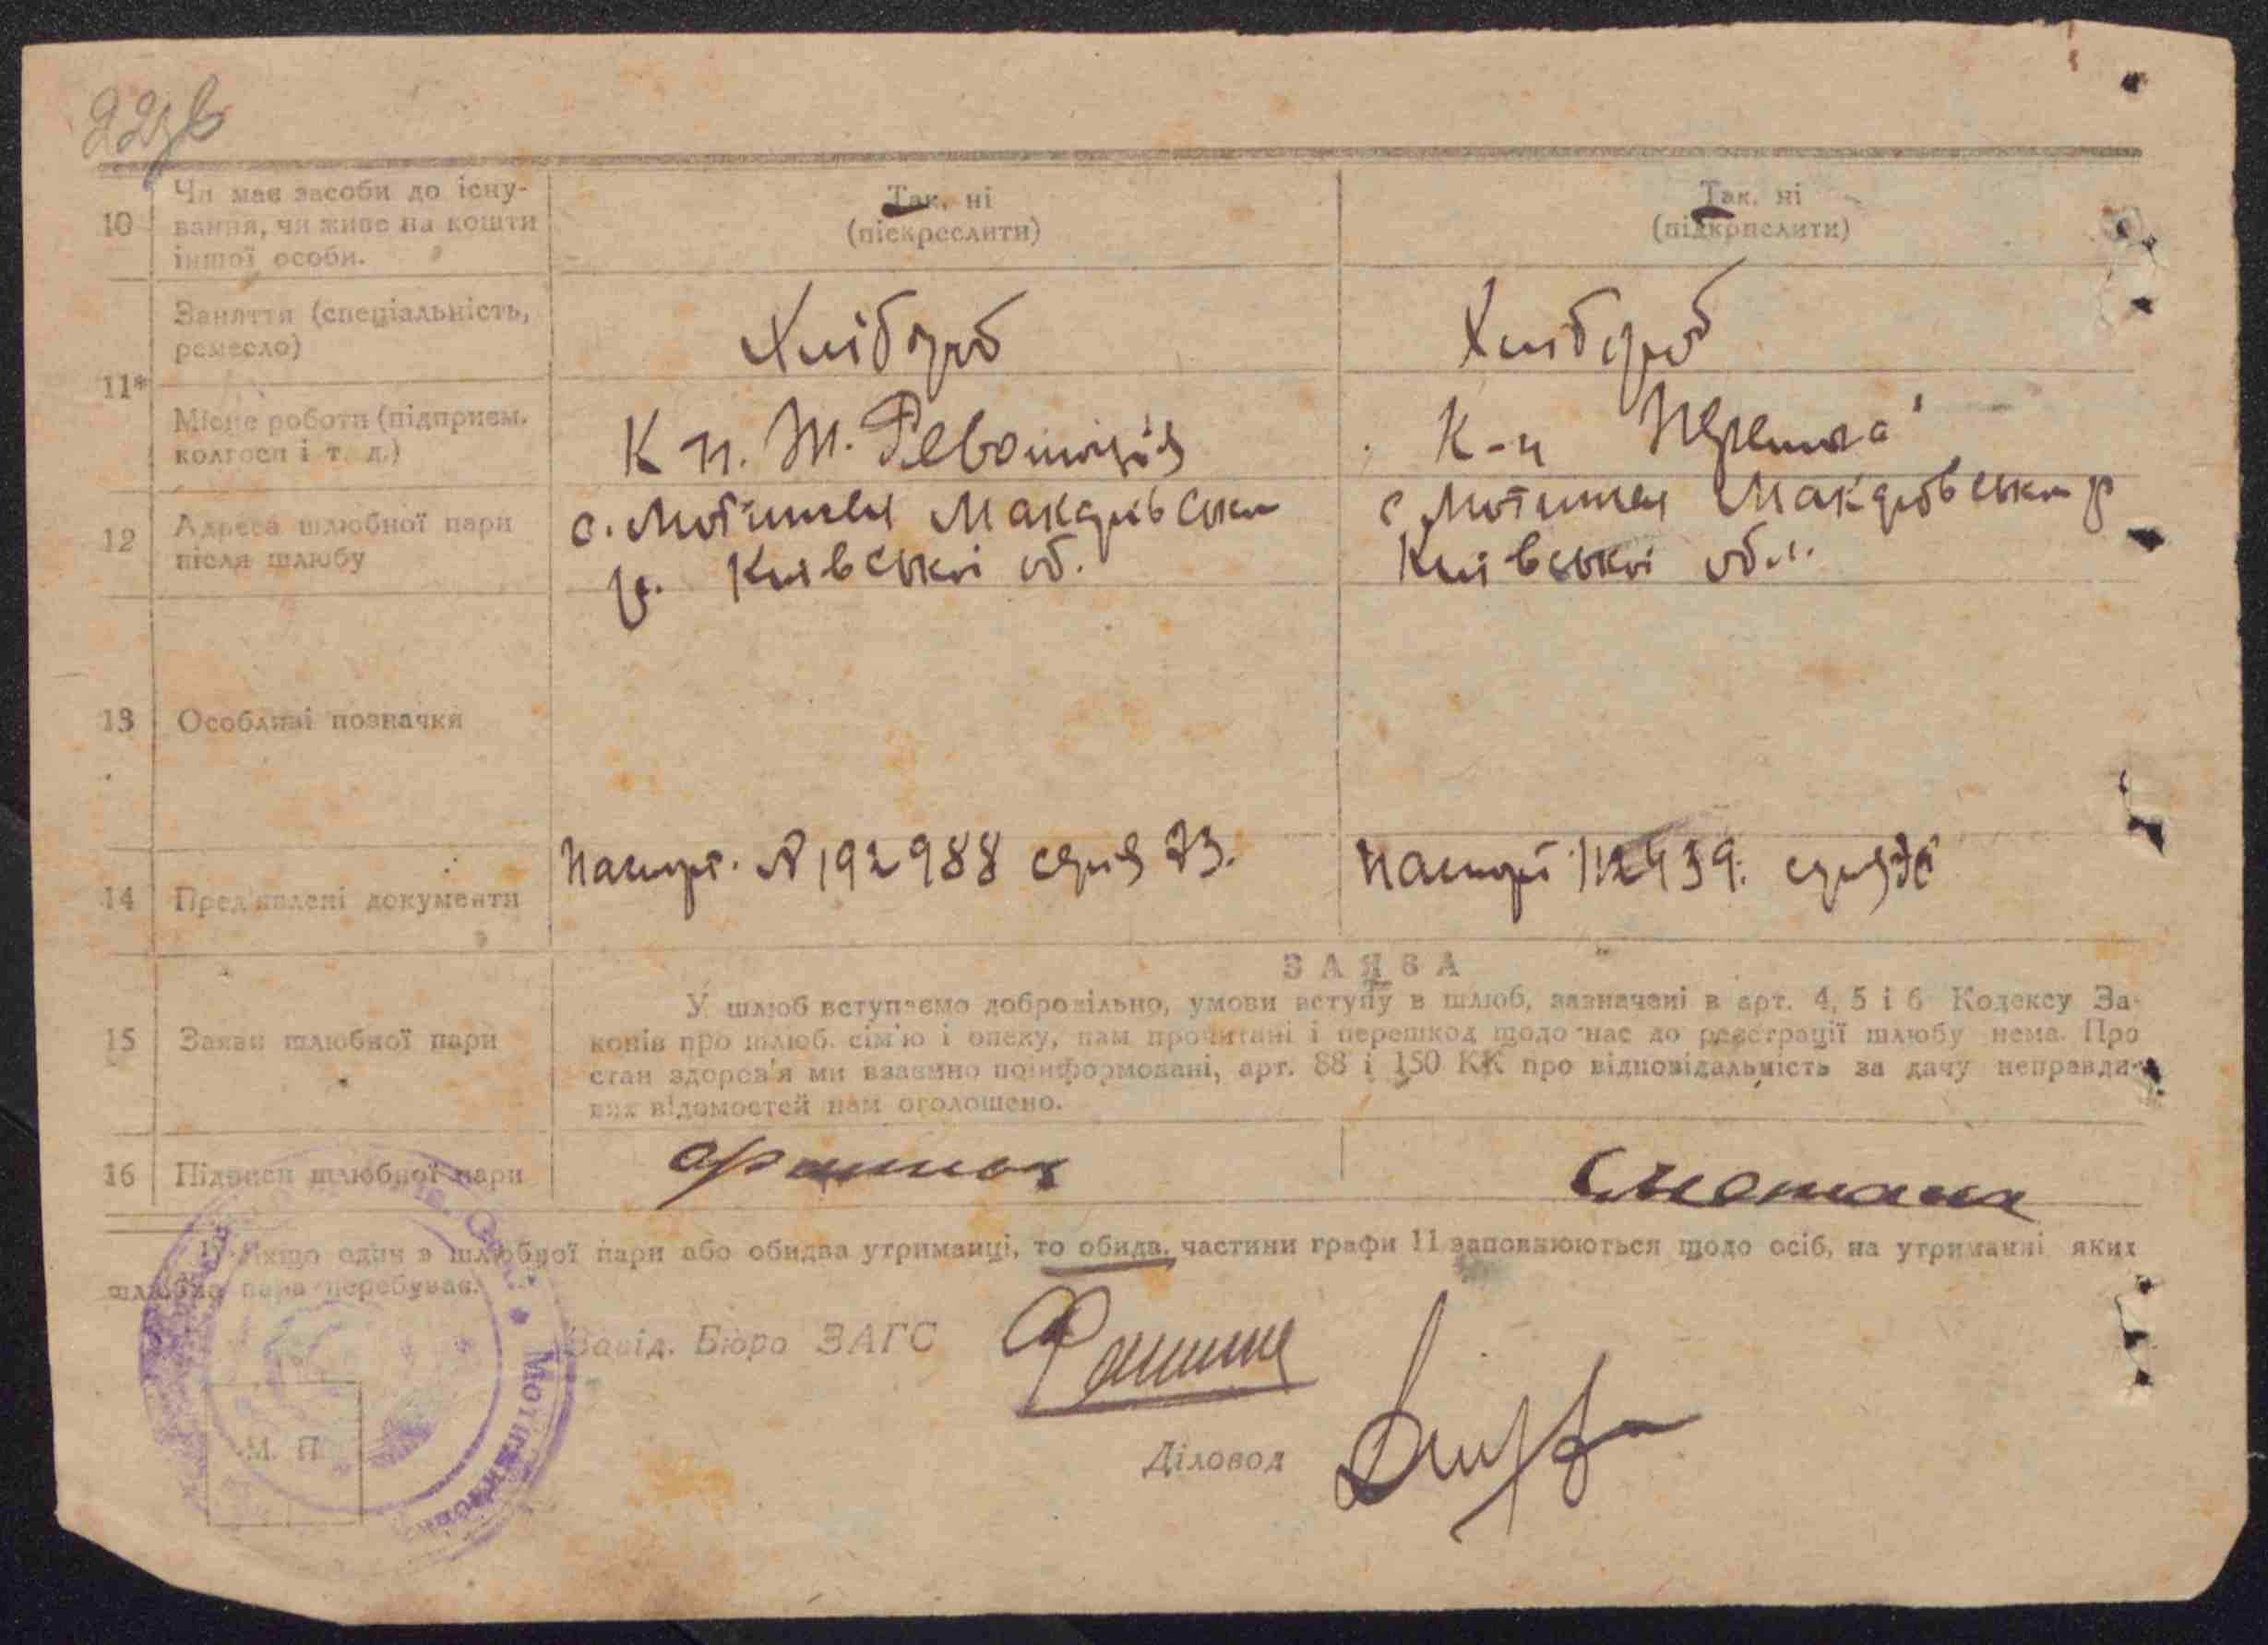 22зв
10
Чи має засоби до існу-
вання, чи живе на кошти
іншої особи.
Так, ні
(піскреслити)
Так, ні
(підкрпслити)
11*
Заняття (спеціальність,
ремесло)
Хлібороб
Хлібороб
Місце роботи (підприєм.
колгосп і т. д.)
К-п. Ж. Революція
К-п Перемога
12
Адреса шлюбної пари
після шлюбу
с. Мотижин Макарівськ
р. Київської об.
с Мотижин Макарівськ р
Київської обл.
13
Особливі позначки
14
Пред'явлені документи
Паспорт. № 192988 серия
Паспорт серия
15
Заяви шлюбної пари
ЗАЯВА
У шлюб вступаємо добровільно, умови вступу в шлюб, зазначені в арт. 4, 5 і 6 Кодексу За-
конів про шлюб. сім'ю і опеку, нам прочитані і перешкод щодо нас до реєстрації шлюбу нема. Про
стан здоров'я ми взаємно поінформовані, арт. 88 і 150 КК про відповідальність за дачу неправди-
вих відомостей нам оголошено.
16
Підписи шлюбної пари
Сметана
Якщо один з шлюбної пари або обидва утриманці, то обидв. частини графи 11 заповнюються щодо осіб, на утриманні яких
шлюбна пара перебуває.
Завід. Бюро ЗАГС
Діловод
М. П.